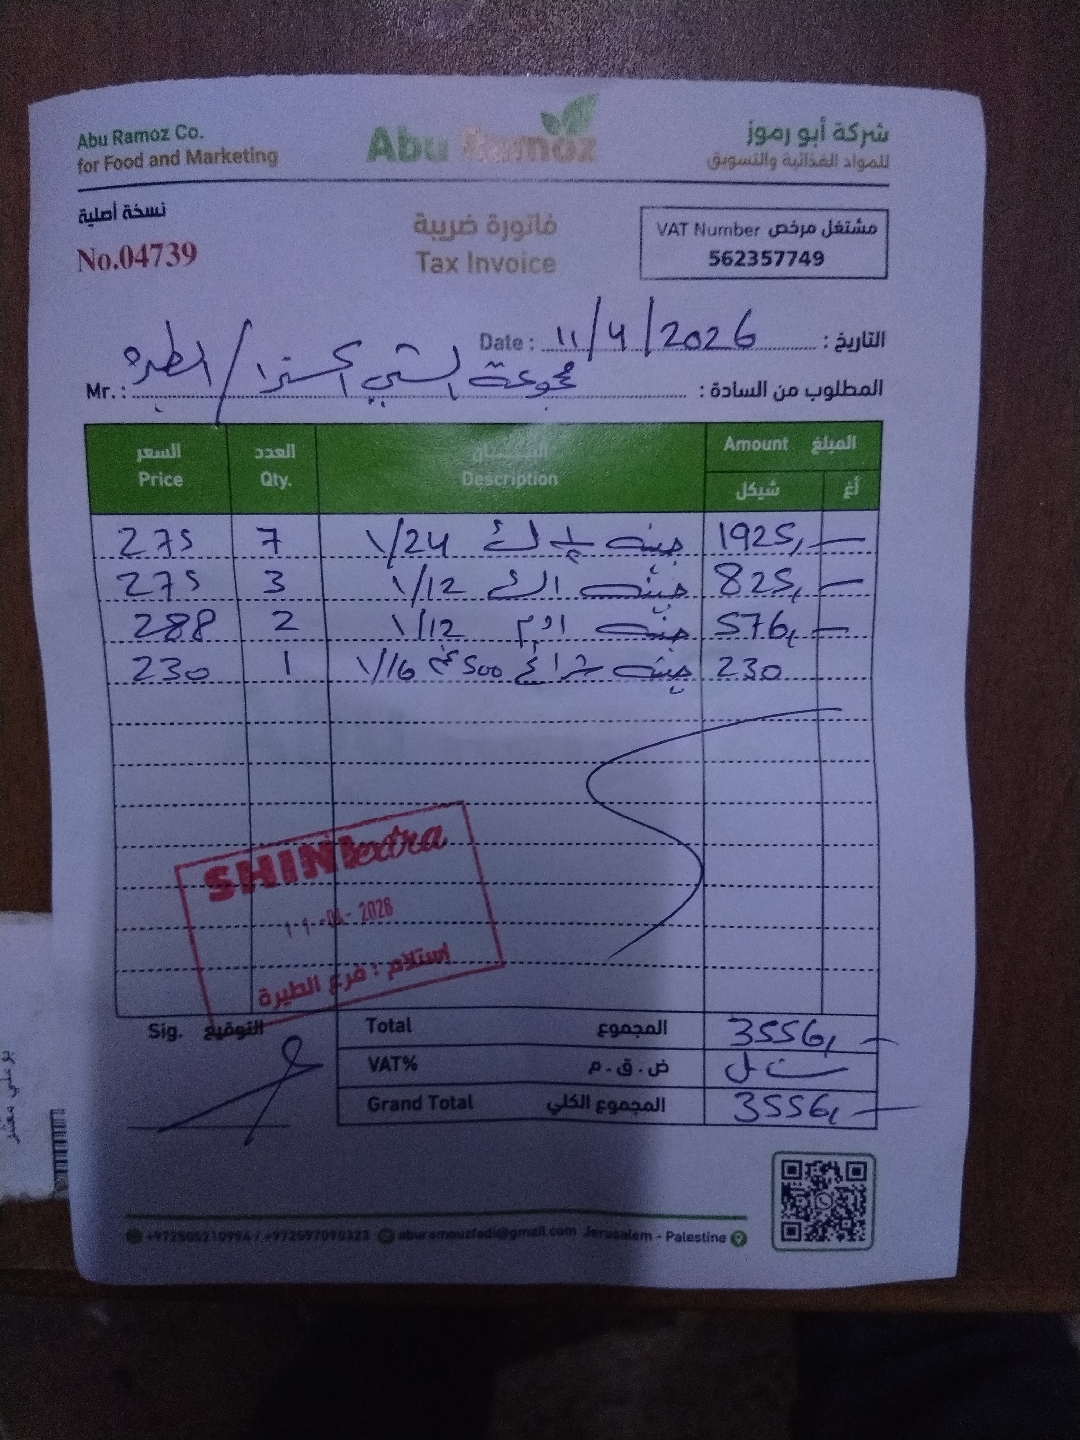 Abu Ramoz Co.
for Food and Marketing
Abu Ramoz
شركة أبو رموز
للمواد الغذائية والتسويق
نسخة أصلية
No.04739
فاتورة ضريبة
Tax Invoice
مشتغل مرخص VAT Number
562357749
Date : 11/4/2026 التاريخ :
Mr. : مجموعة الشني اكسترا / الطيرة المطلوب من السادة :
السعر العدد المبلغ
Price Qty. Description Amount
شيكل أغ
275 7 جبنه 1/24 1925,-
275 3 جبنه 1/12 825,-
288 2 جبنه 1/12 576,-
230 1 جبنه 500 1/16 230
SHINI extra
11-04-2026
استلام : فرع الطيرة
Sig. التوقيع
Total المجموع 3556,-
VAT% ض.ق.م
Grand Total المجموع الكلي 3556,-
aburamouzfadi@gmail.com Jerusalem - Palestine